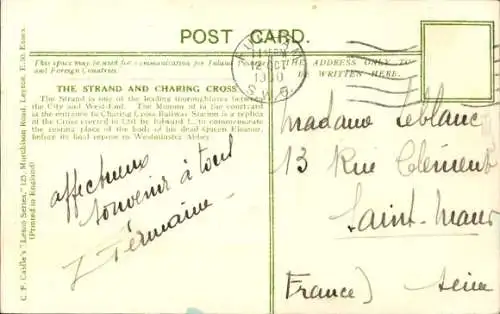 POST CARD.
This space may be used for communication for Inland Postage
and Foreign Countries
THE ADDRESS ONLY TO
BE WRITTEN HERE.
12 OCT
1930
S.W.5
THE STRAND AND CHARING CROSS
The Strand is one of the leading thoroughfares between
the City and West-End. The Monument in the
is the entrance to Charing Cross Railway Station is a replica
of the Cross erected in 1291 by Edward I., to commemorate
the resting place of the body of his dead Queen Eleanor,
before its final repose in Westminster Abbey.
affectueux
souvenir à tous
Germaine
Madame Leblanc
13 Rue Clément
Saint-Maur
France) Seine
C. F. Castle's "Lesco Series," 125, Murchison Road, Leyton, E.10, Essex.
(Printed in England)